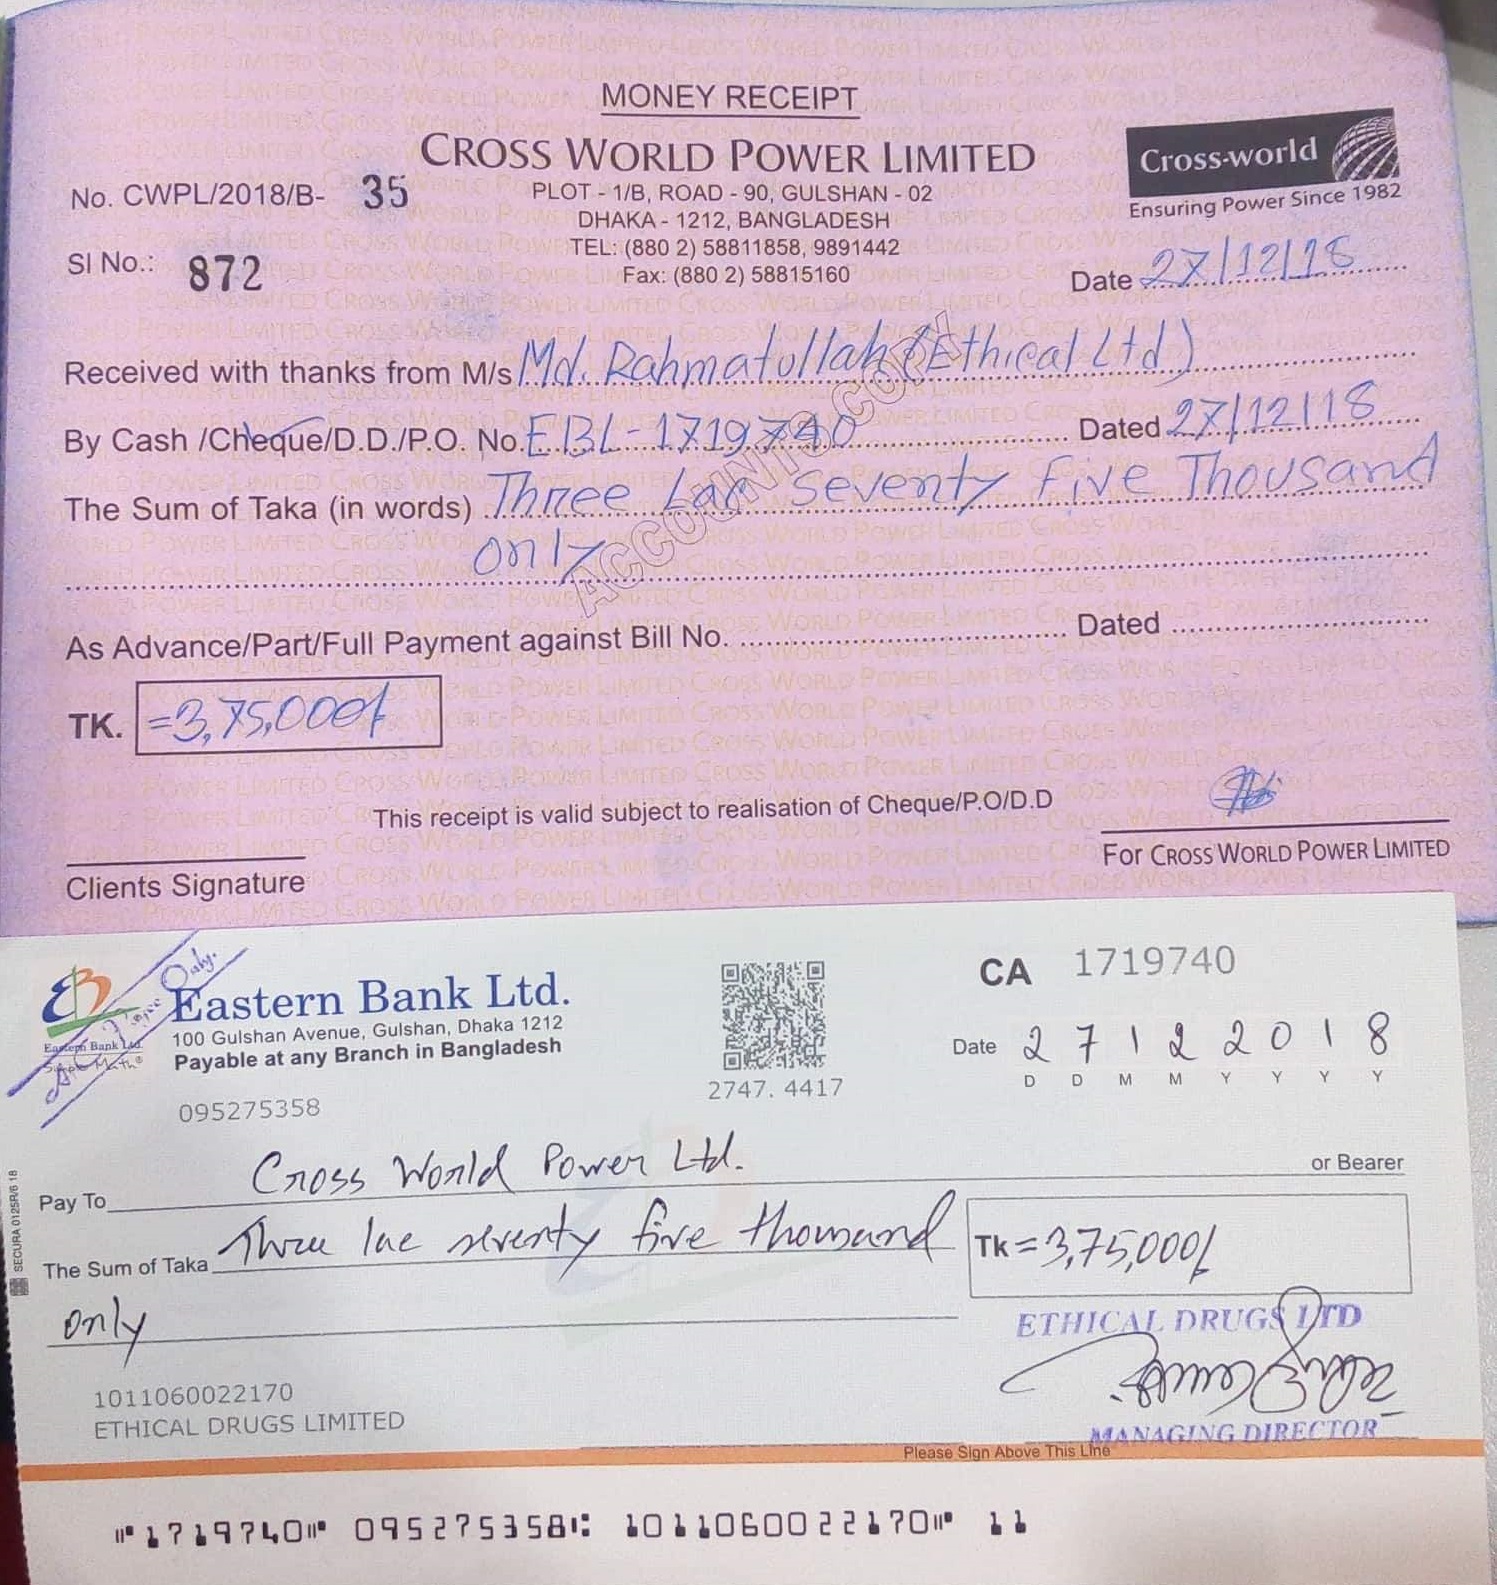 MONEY RECEIPT
CROSS WORLD POWER LIMITED
Cross-world
Ensuring Power Since 1982
No. CWPL/2018/B- 35
PLOT - 1/B, ROAD - 90, GULSHAN - 02
DHAKA - 1212, BANGLADESH
TEL: (880 2) 58811858, 9891442
Fax: (880 2) 58815160
Sl No.: 872
Date 27/12/18
Received with thanks from M/s Md. Rahmatullah (Ethical Ltd)
By Cash /Cheque/D.D./P.O. No. EBL-1719740 Dated 27/12/18
The Sum of Taka (in words) Three Lac Seventy Five Thousand
only
ACCOUNTS COPY
As Advance/Part/Full Payment against Bill No. Dated
TK. =3,75,000/
This receipt is valid subject to realisation of Cheque/P.O/D.D
Clients Signature
For CROSS WORLD POWER LIMITED
Only.
Eastern Bank Ltd.
Eastern Bank Ltd.
100 Gulshan Avenue, Gulshan, Dhaka 1212
Payable at any Branch in Bangladesh
095275358
2747. 4417
CA 1719740
Date 2 7 1 2 2 0 1 8
D D M M Y Y Y Y
Pay To Cross World Power Ltd. or Bearer
The Sum of Taka Three lac seventy five thousand
Tk =3,75,000/
only
ETHICAL DRUGS LTD
1011060022170
ETHICAL DRUGS LIMITED
MANAGING DIRECTOR
Please Sign Above This Line
SECURA 0125R/6 18
⑈1719740⑈ 095275358⑆ 1011060022170⑈ 11